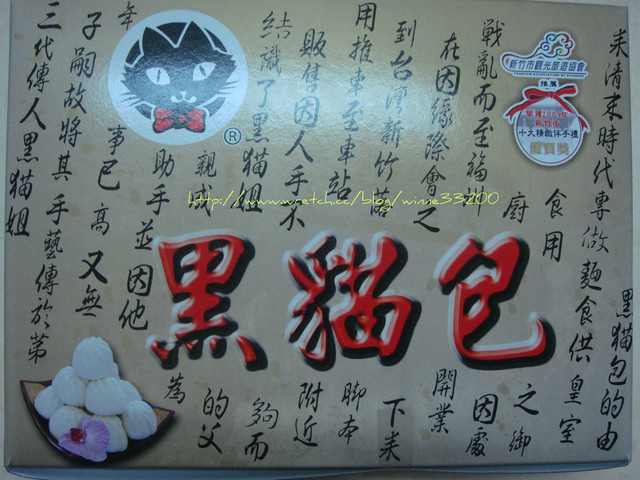 黑貓包
新竹市觀光旅遊協會
推薦
榮獲2009年
新竹市
十大精緻伴手禮
優質獎
®
黑猫包的由
耒清末時代專做麵食供皇室
之御
廚
食用
因處
戰亂而至福州
開業
在因緣際會之
下耒
到台灣新竹
脚本
用推車至車站
附近
販售因人手不
夠而
結識了黑猫姐
的父
親戚
為
助手並因他
年
事已高又無
子嗣故將其手藝傳於第
三代傳人黑猫姐
http://www.wretch.cc/blog/winne33200